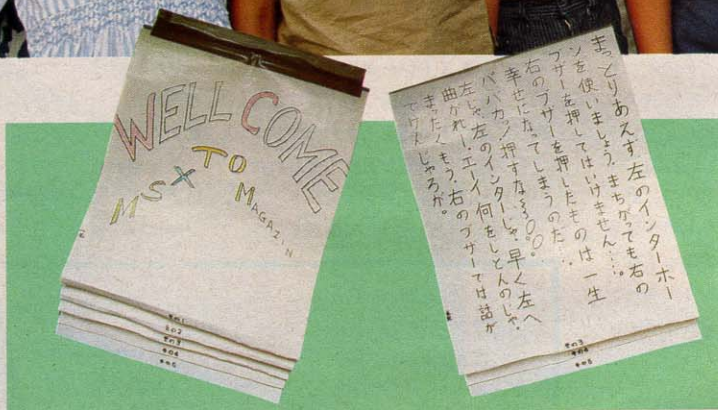 WELL COME
TO
MSX MAGAZIN
その1
その2
その3
その4
その5
まっとりあえず左のインターホー
ンを使いましょう。まちがっても右の
ブザーを押してはいけません…。
右のブザーを押したものは一生
幸せになってしまうのだ…。
ババカッ!押すな〜〜。早く左へ
左じゃ左のインターじゃ。
曲がれ!エーイ何をしとんのじゃ。
まったくもう、右のブザーでは話が
でけんじゃろが。
その3
その4
その5